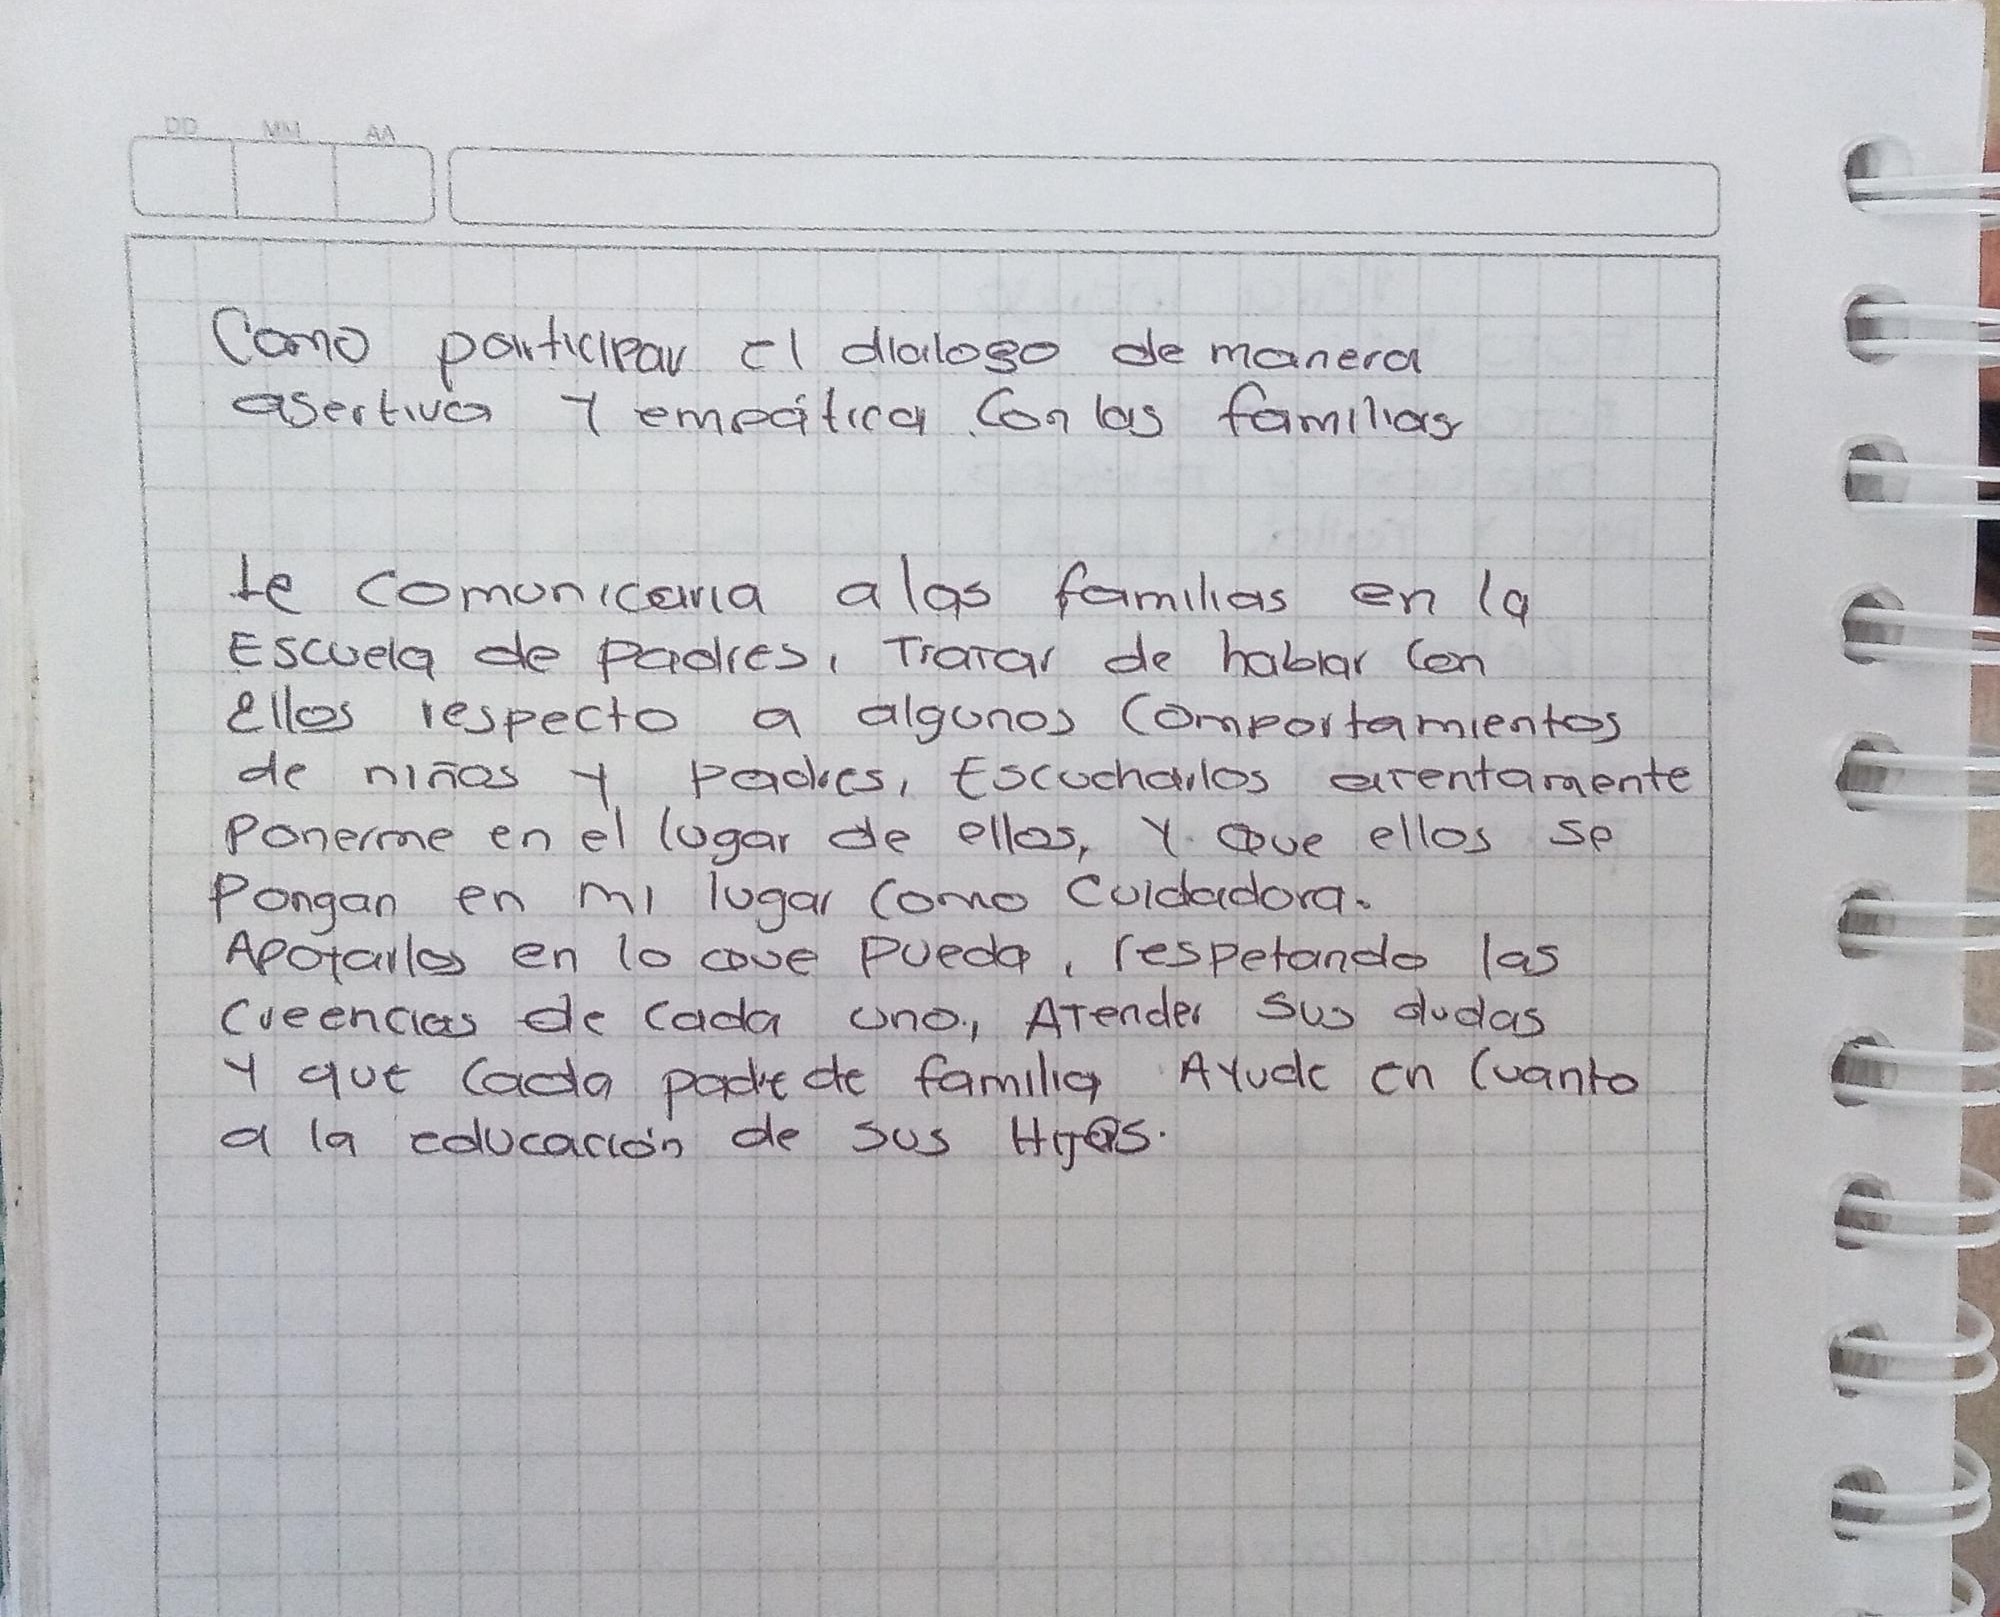 DD MM AA
Como participar el dialogo de manera
asertiva y empática con las familias
Le comunicaria a las familias en la
Escuela de padres, Tratar de hablar con
Ellos respecto a algunos comportamientos
de niños y padres, Escucharlos atentamente
Ponerme en el lugar de ellos, y que ellos se
Pongan en mi lugar como cuidadora.
Apoyarlos en lo que pueda, respetando las
creencias de cada uno, Atender sus dudas
y que cada padre de familia Ayude en cuanto
a la educación de sus Hij@s.